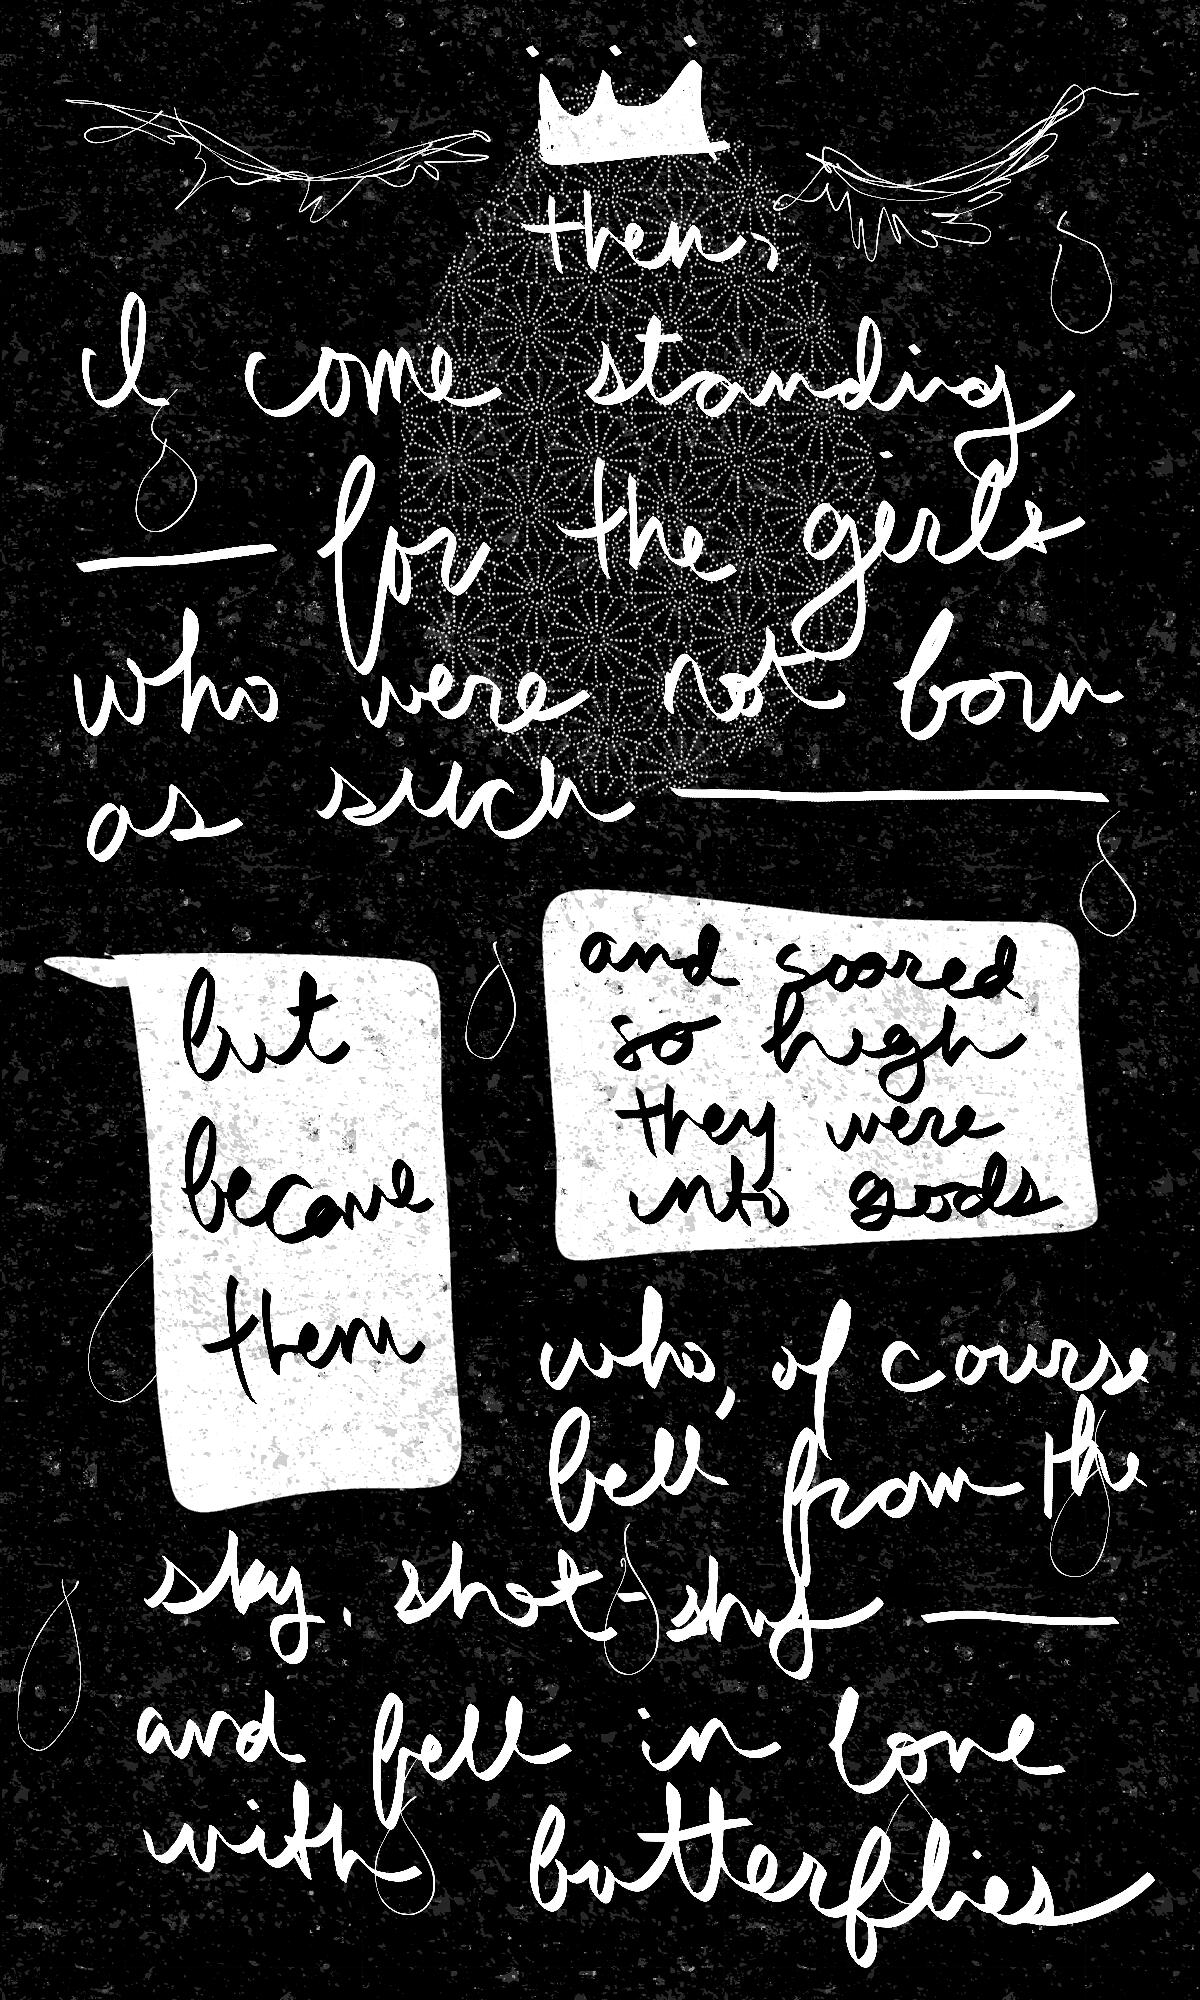 then,
I come standing
— for the girls
who were not born
as such —
but
became
them
and soared
so high
they were
into gods
who, of course
fell from the
sky. shot-shy —
and fell in love
with butterflies